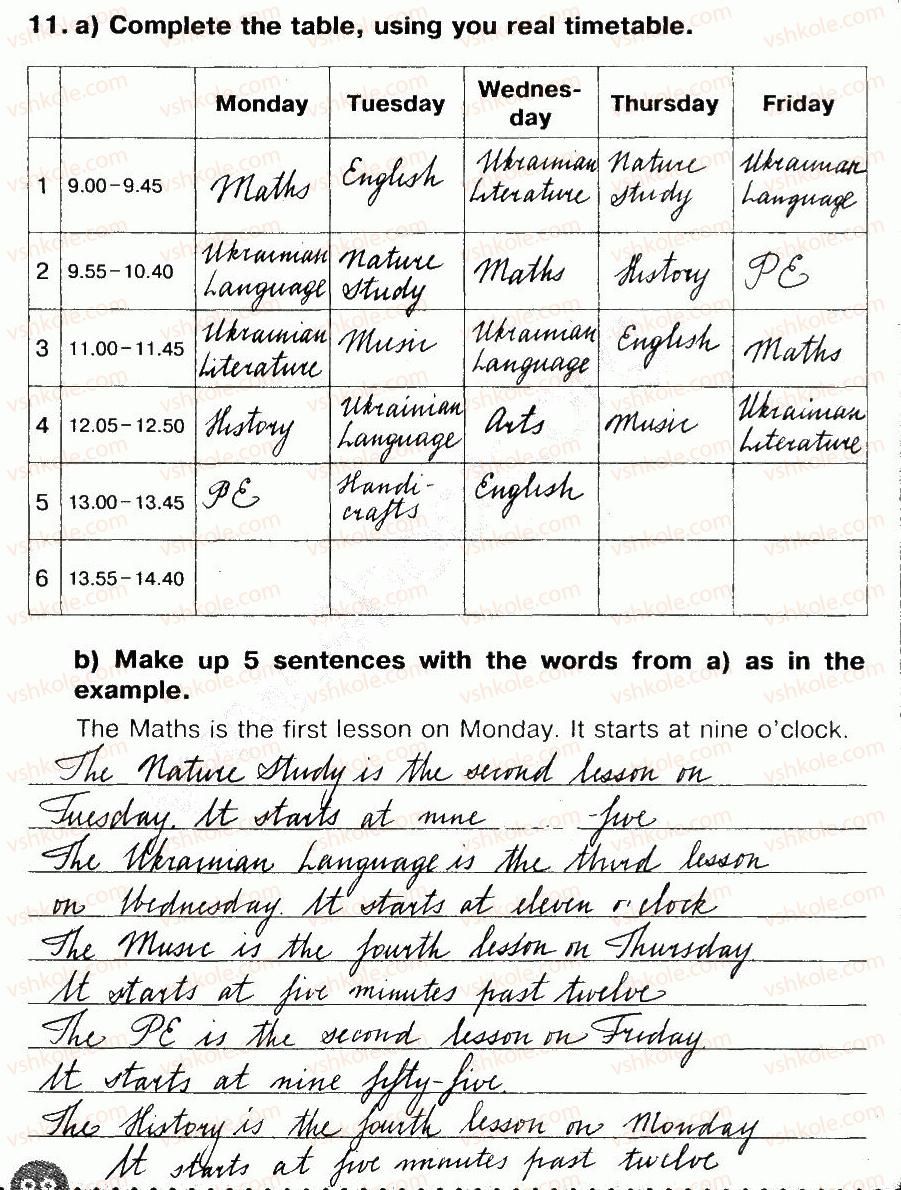 11. a) Complete the table, using you real timetable.
Monday Tuesday Wednes-day Thursday Friday
1 9.00–9.45 Maths English Ukrainian Literature Nature Study Ukrainian Language
2 9.55–10.40 Ukrainian Language Nature Study Maths History PE
3 11.00–11.45 Ukrainian Literature Music Ukrainian Language English Maths
4 12.05–12.50 History Ukrainian Language Arts Music Ukrainian Literature
5 13.00–13.45 PE Handi-crafts English
6 13.55–14.40
b) Make up 5 sentences with the words from a) as in the
example.
The Maths is the first lesson on Monday. It starts at nine o'clock.
The Nature Study is the second lesson on
Tuesday. It starts at nine -five
The Ukrainian Language is the third lesson
on Wednesday. It starts at eleven o'clock
The Music is the fourth lesson on Thursday
It starts at five minutes past twelve
The PE is the second lesson on Friday.
It starts at nine fifty-five.
The History is the fourth lesson on Monday
It starts at five minutes past twelve
vshkole.com